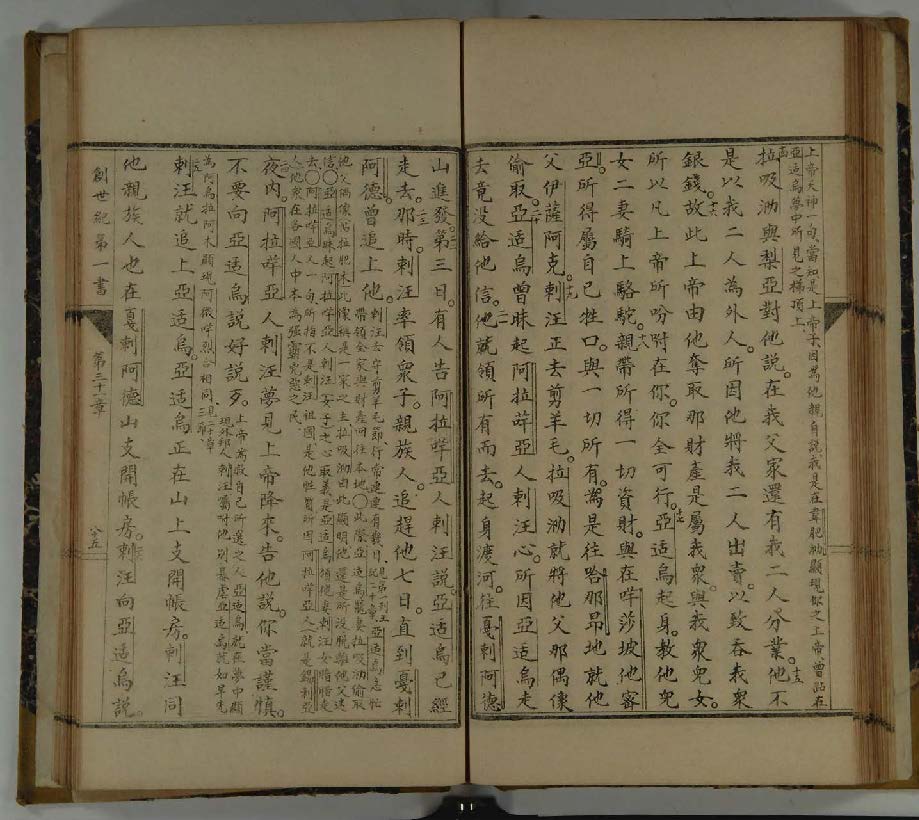 上帝天神一句當知是上帝子因為他親自說我是在韋肥袖顯現你之上帝曾站在
亞适烏夢中所見之梯頂上
拉吸泐與梨亞對他說在我父家還有我二人分業他不
是以我二人為外人所因他將我二人出賣以致吞我衆
銀錢故此上帝由他奪取那財產是屬我衆與我衆兒女
所以凡上帝所吩咐在你你全可行亞适烏起身教他兒
女二妻騎上駱駝親帶所得一切資財與在咩莎坡他窩
亞所得屬自已牲口與一切所有為是往哈那昂地就他
父伊薩阿克剌汪正去剪羊毛拉吸泐就將他父那偶像
偷取亞适烏曾昧起阿拉咩亞人剌汪心所因亞适烏走
去竟没給他信他就領所有而去起身渡河往戛剌阿德
山進發第三日有人告阿拉咩亞人剌汪說亞适烏已經
走去那時剌汪率領衆子親族人追趕他七日直到戛剌
阿德曾追上他
夜内阿拉咩亞人剌汪夢見上帝降來告他說你當謹慎
不要向亞适烏說好說歹
剌汪就追上亞适烏亞适烏正在山上支開帳房剌汪同
他親族人也在戛剌阿德山支開帳房剌汪向亞适烏說
創世紀第一書 第三十一章 八十五